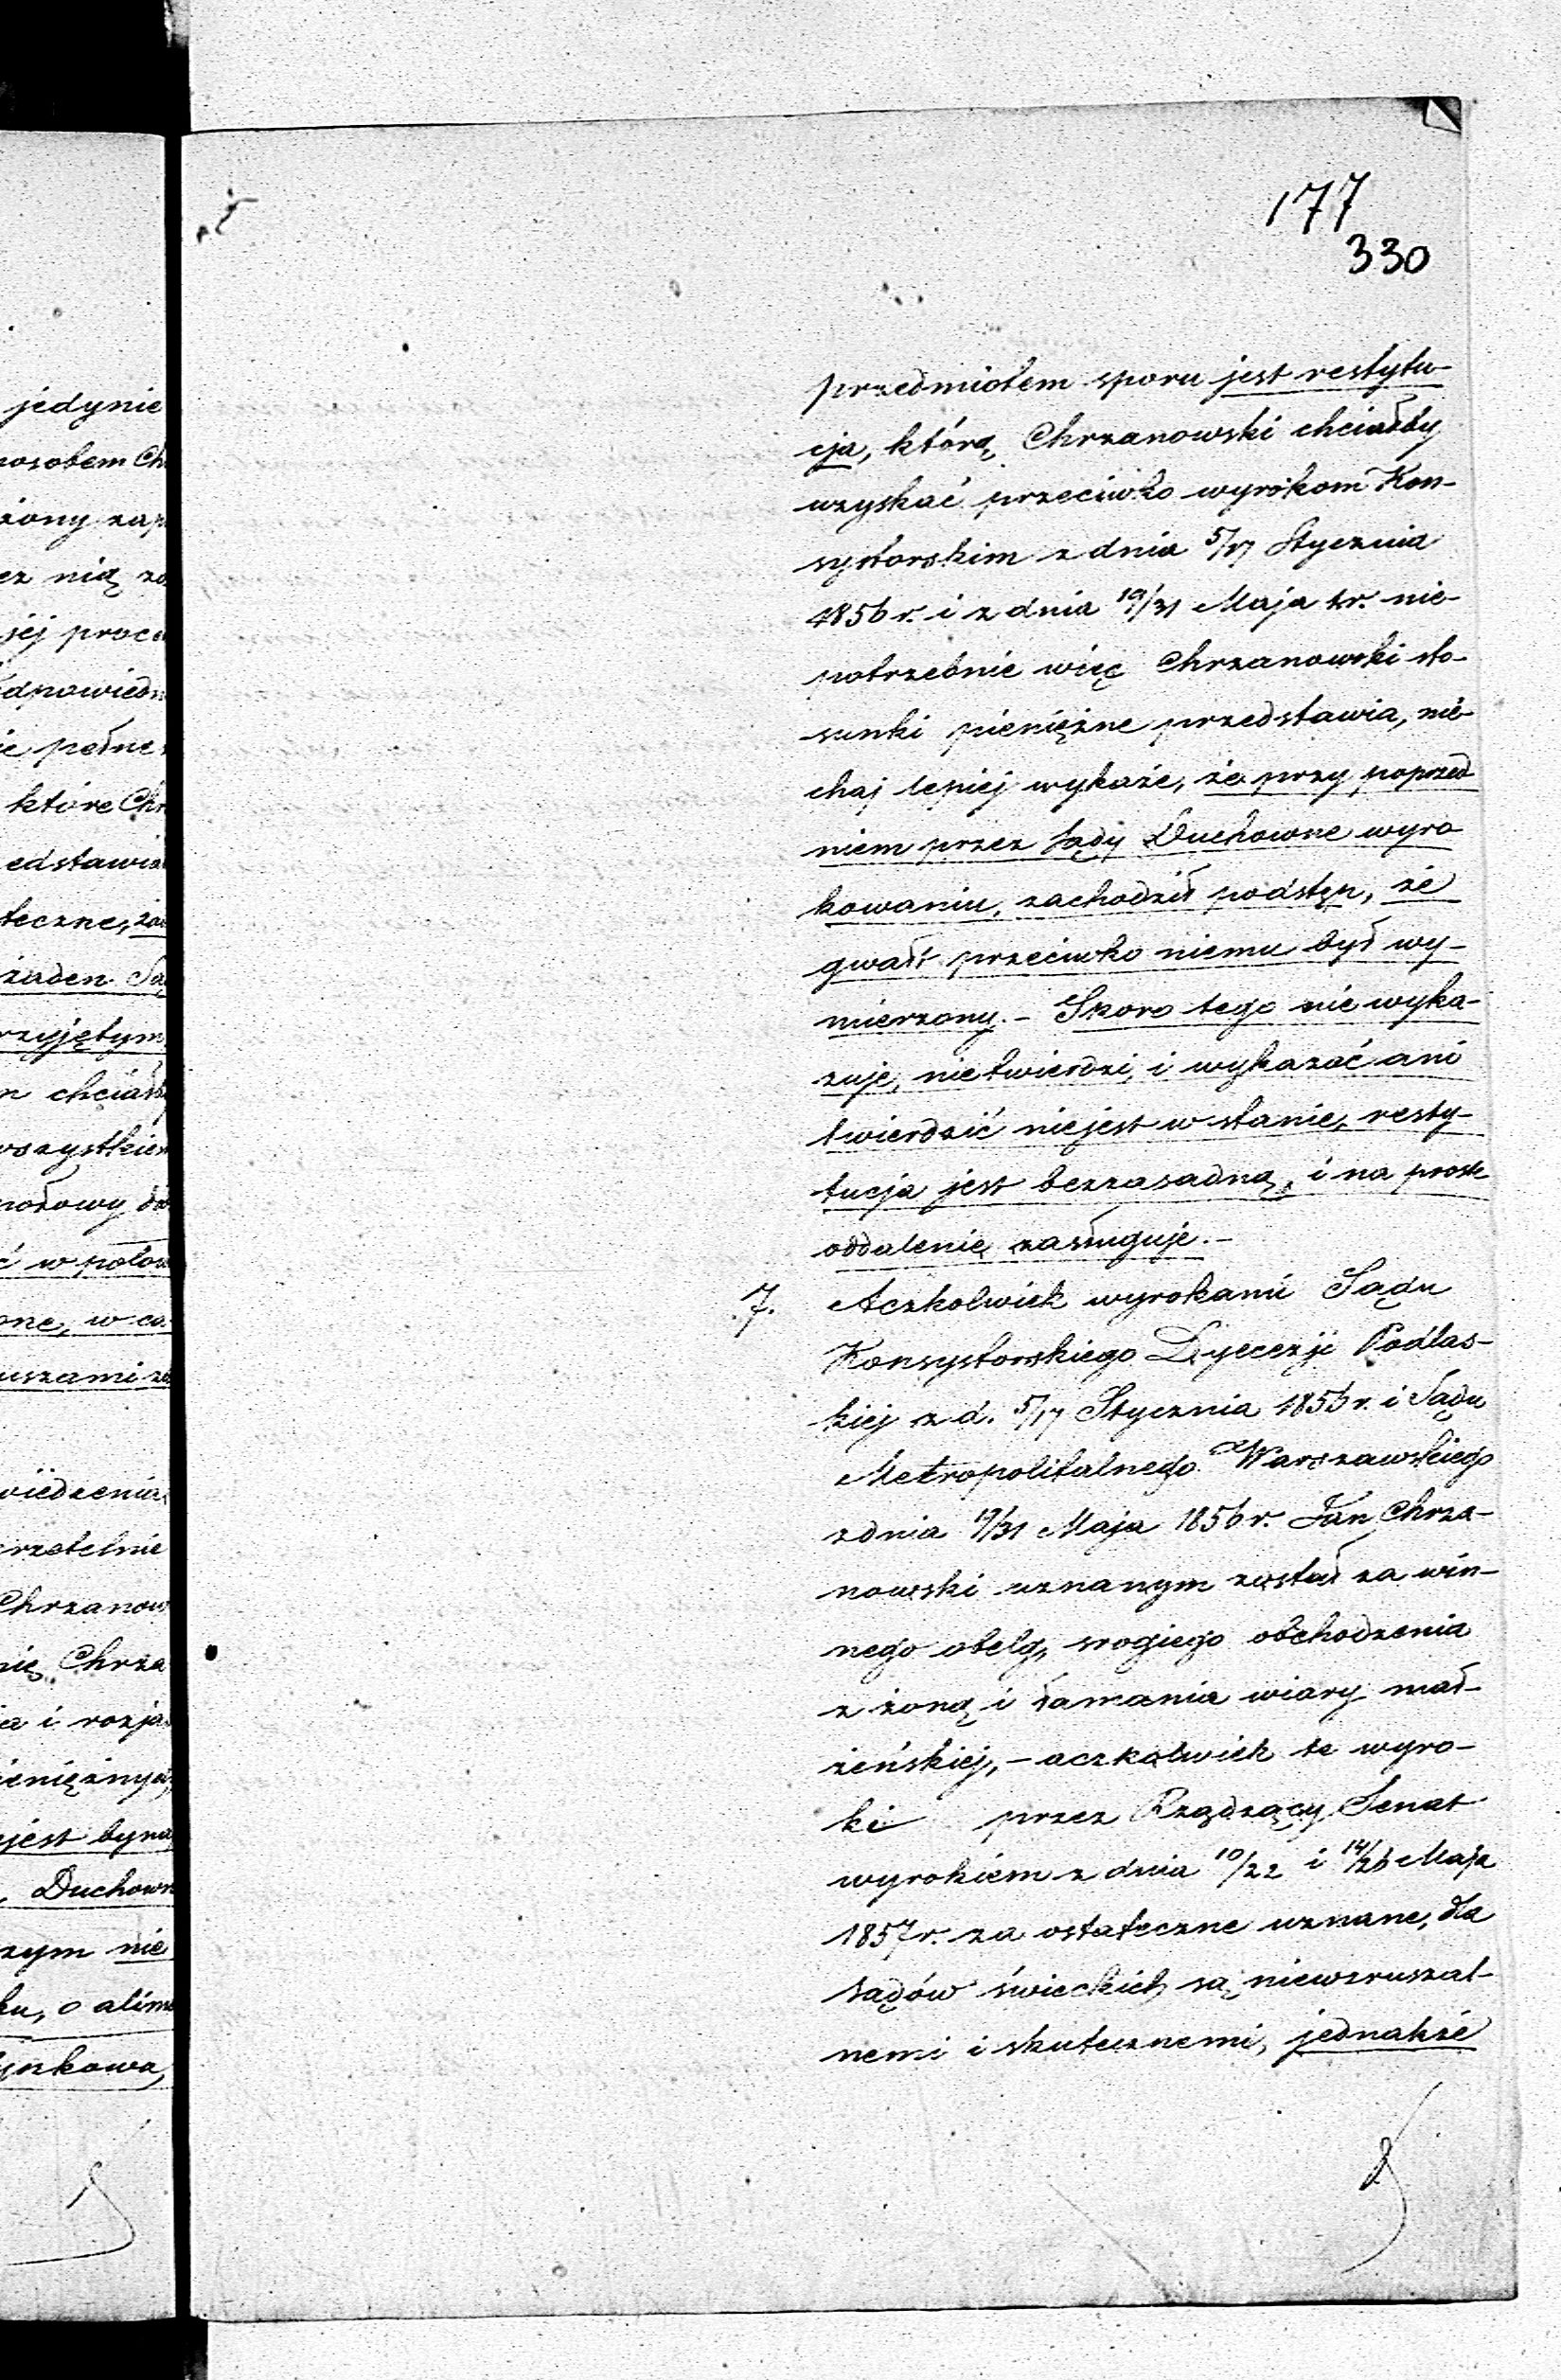 177
330
przedmiotem sporu jest restytu-
cja, którą Chrzanowski chciałby
uzyskać przeciwko wyrokom Kon-
systorskim z dnia 5/17 Stycznia
1856 r. i z dnia 19/31 Maja t.r. nie-
potrzebnie więc Chrzanowski sto-
sunki pieniężne przedstawia, nie-
chaj lepiej wykaże, że przy poprzed
niem przez Sądy Duchowne wyro
kowaniu, zachodził podstęp, że
gwałt przeciwko niemu był wy-
mierzony. - Skoro tego nie wyka-
zuje, nie twierdzi, i wykazać ani
twierdzić niejest w stanie, resty-
tucja jest bezzasadną, i na proste
oddalenie zasługuje. -
7. Aczkolwiek wyrokami Sądu
Konsystorskiego Dyecezji Podlas-
kiej z d. 5/17 Stycznia 1856 r. i Sądu
Metropolitalnego Warszawskiego
z dnia 19/31 Maja 1856 r. Jan Chrza-
nowski uznanym został za win-
nego obelg, srogiego obchodzenia
z żoną i łamania wiary mał-
żeńskiej, - aczkolwiek te wyro-
ki przez Rządzący Senat
wyrokiem z dnia 10/22 i 14/26 Maja
1857 r. za ostateczne uznane, dla
sądów świeckich są niewzruszal-
nemi i skutecznemi, jednakże
jedynie
żony
jej
które
żaden
wszystkiem
Chrza
i
jest
Duchown
nie